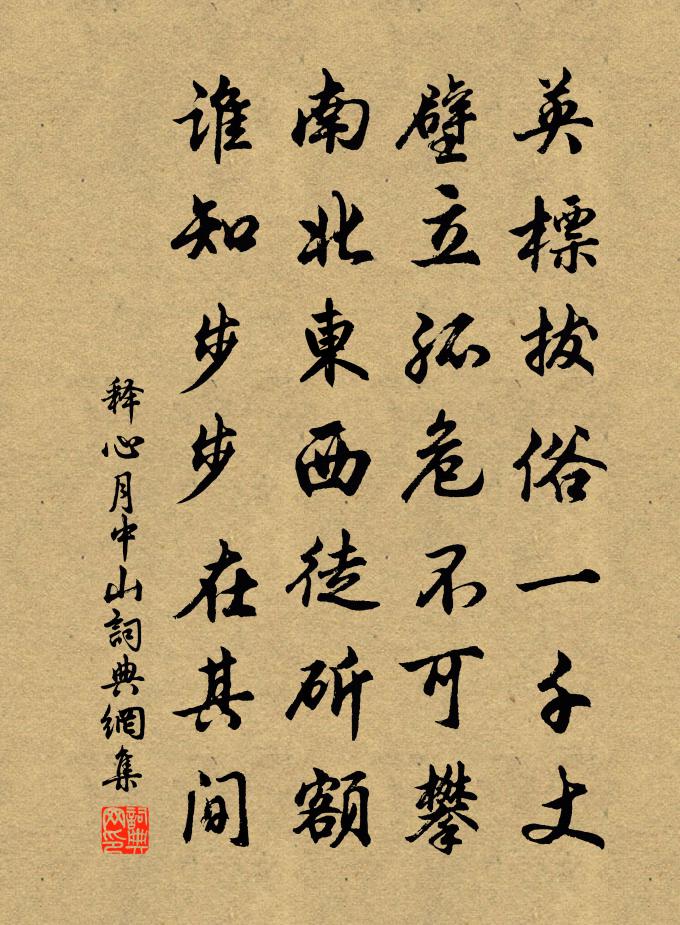 英標拔俗一千丈
壁立孤危不可攀
南北東西徒斫額
誰知步步在其间
释心月中山詞典網集
詞典网印